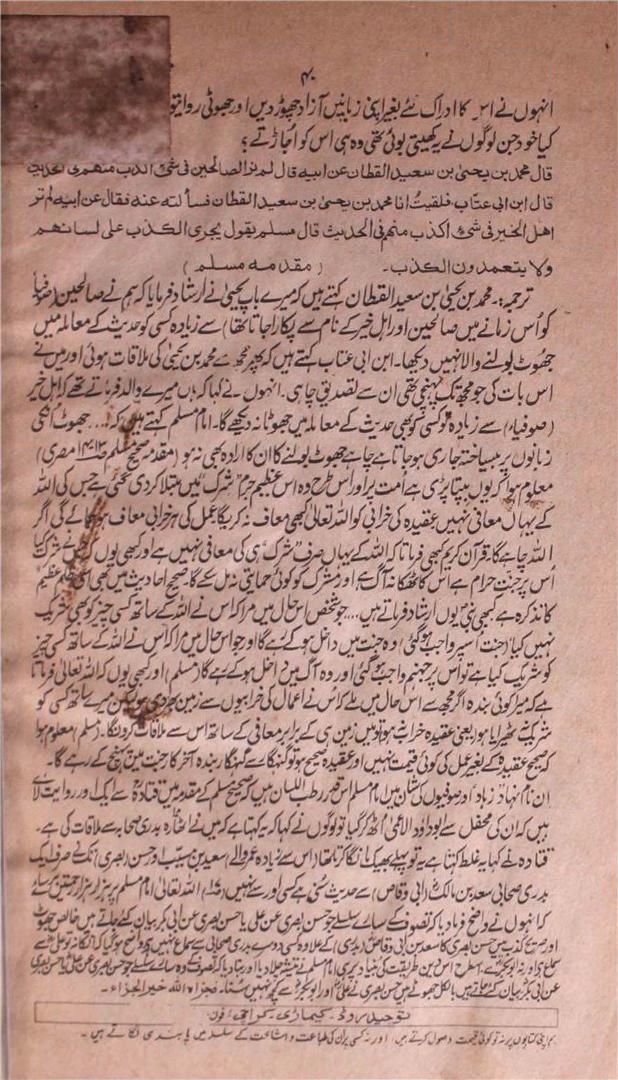 ۴۰
انہوں نے اس کا ادراک کئے بغیر اپنی زبانیں آزاد چھوڑ دیں اور جھوٹی روایتو
کیا خود جن لوگوں نے یہ کھیتی بوئی تھی وہ ہی اس کو اُجاڑتے ؟
قال محمد بن یحییٰ بن سعید القطان عن ابیہ قال لم نر الصالحین فی شیٔ اکذب منھم فی الحدیث
قال ابن ابی عتاب فلقیتُ انا محمد بن یحییٰ بن سعید القطان فسألتہ عنہ فقال عن ابیہ لم تر
اھل الخیر فی شیٔ اکذب منھم فی الحدیث قال مسلم یقول یجری الکذب علی لسانھم
ولا یتعمدون الکذب۔ (مقدمہ مسلم)
ترجمہ:۔ محمد بن یحییٰ بن سعید القطان کہتے ہیں کہ میرے باپ یحییٰ نے ارشاد فرمایا کہ ہم نے صالحین (صوفیا
کو اُس زمانے میں صالحین اور اہلِ خیر کے نام سے پکارا جاتا تھا) سے زیادہ کسی کو حدیث کے معاملہ میں
جھوٹ بولنے والا نہیں دیکھا۔ ابن ابی عتاب کہتے ہیں کہ پھر مجھ سے محمد بن یحییٰ کی ملاقات ہوئی اور میں نے
اس بات کی جو مجھ تک پہنچی تھی ان سے تصدیق چاہی۔ انہوں نے کہا کہ ہاں میرے والد فرماتے تھے کہ اہل خیر
(صوفیاء) سے زیادہ تو کسی کو بھی حدیث کے معاملہ میں جھوٹا نہ دیکھے گا۔ امام مسلم کہتے ہیں کہ:... جھوٹ انکی
زبانوں پر بیساختہ جاری ہو جاتا ہے چاہے جھوٹ بولنے کا ان کا ارادہ بھی نہ ہو (مقدمہ صحیح مسلم مصری)
معلوم ہوا کہ یوں بپتا پڑی ہے امت پر اور اس طرح وہ اس عظیم جرم "شرک" میں مبتلا کر دی گئی ہے جس کی اللہ
کے یہاں معافی نہیں عقیدہ کی خرابی کو اللہ تعالیٰ کبھی معاف نہ کریگا عمل کی ہر خرابی معاف ہو جائے گی اگر
اللہ چاہے گا۔ قرآن کریم کبھی فرماتا کہ اللہ کے یہاں صرف "شرک" ہی کی معافی نہیں ہے اور کبھی یوں کہ جس نے شرک کیا
اُس پر جنت حرام ہے اس کا ٹھکانہ آگ ہے اور مشرک کو کوئی حمایتی نہ مل سکے گا۔ صحیح احادیث میں بھی اسی ظلم عظیم
کا تذکرہ ہے کبھی نبیؐ یوں ارشاد فرماتے ہیں... جو شخص اس حال میں مرا کہ اس نے اللہ کے ساتھ کسی چیز کو بھی شریک
نہیں کیا (جنت اُس پر واجب ہو گئی) وہ جنت میں داخل ہو کے رہے گا اور جو اس حال میں مرا کہ اُس نے اللہ کے ساتھ کسی چیز
کو شریک کیا ہے تو اس پر جہنم واجب ہو گئی اور وہ آگ میں داخل ہو کے رہے گا (مسلم) اور کبھی یوں کہ اللہ تعالیٰ فرماتا
ہے کہ میرا کوئی بندہ اگر مجھ سے اس حال میں ملے کہ اُس نے اعمال کی خرابیوں سے زمین بھر دی ہو لیکن میرے ساتھ کسی کو
شریک نہ ٹھیرایا ہو (یعنی عقیدہ خراب نہ ہو) تو میں زمین ہی کے برابر معافی کے ساتھ اس سے ملاقات کرونگا۔ (مسلم) معلوم ہوا
کہ صحیح عقیدہ کے بغیر عمل کی کوئی قیمت نہیں اور عقیدہ صحیح ہو تو گنہگار سے گنہگار بندہ آخر کار جنت میں پہنچ کے رہے گا۔
ان نام نہاد زہاد اور صوفیوں کی شان میں امام مسلم اس قدر رطب اللسان ہیں کہ صحیح مسلم کے مقدمہ میں قتادہ سے ایک اور روایت لائے
ہیں کہ ان کی محفل سے ابوداؤد الاعمیٰ اُٹھ کر گیا تو لوگوں نے کہا کہ یہ کہتا ہے کہ میں نے اٹھارہ بدری صحابہ سے ملاقات کی ہے۔
قتادہ نے کہا یہ غلط کہتا ہے یہ تو پہلے بھیک مانگا کرتا تھا اس سے زیادہ عمر والے سعید بن مسیّب اور حسن (بصری) تک نے صرف ایک
بدری صحابی سعد بن مالک (ابی وقاص) سے حدیث سُنی ہے کسی اور سے نہیں اللہ تعالیٰ امام مسلم پر ہزار ہزار رحمتیں برسائے
کہ انہوں نے واضح فرما دیا کہ تصوف کے سارے سلسلے جو حسن بصری عن علی یا حسن بصری عن ابی بکر بیان کئے جاتے ہیں خالص جھوٹ
اور صریح کذب ہیں حسن بصری کا سعد بن ابی وقاص (بدری) کے علاوہ کسی دوسرے بدری صحابی سے سماع نہیں یہ واضح ہو گیا کہ انکا نہ تو علیؓ سے
سماع ہے اور نہ ابوبکرؓ سے، اسطرح اس دین طریقت کی بنیاد ہی پر امام مسلم نے تیشہ چلا دیا اور بتا دیا کہ تصوف کے وہ سارے سلسلے جو حسن بصری عن علی یا حسن بصری
عن ابی بکر بیان کئے جاتے ہیں بالکل جھوٹے ہیں حسن بصری نے علیؓ اور ابوبکرؓ سے کچھ نہیں سُنا۔ فجزاہ اللہ خیر الجزاء۔
توحید روڈ۔ کیماڑی۔ کراچی، فون:
ہم اپنی کتابوں پر نہ تو کوئی قیمت وصول کرتے ہیں، اور نہ کسی پر ان کی طباعت و اشاعت کے سلسلہ میں پابندی لگاتے ہیں۔